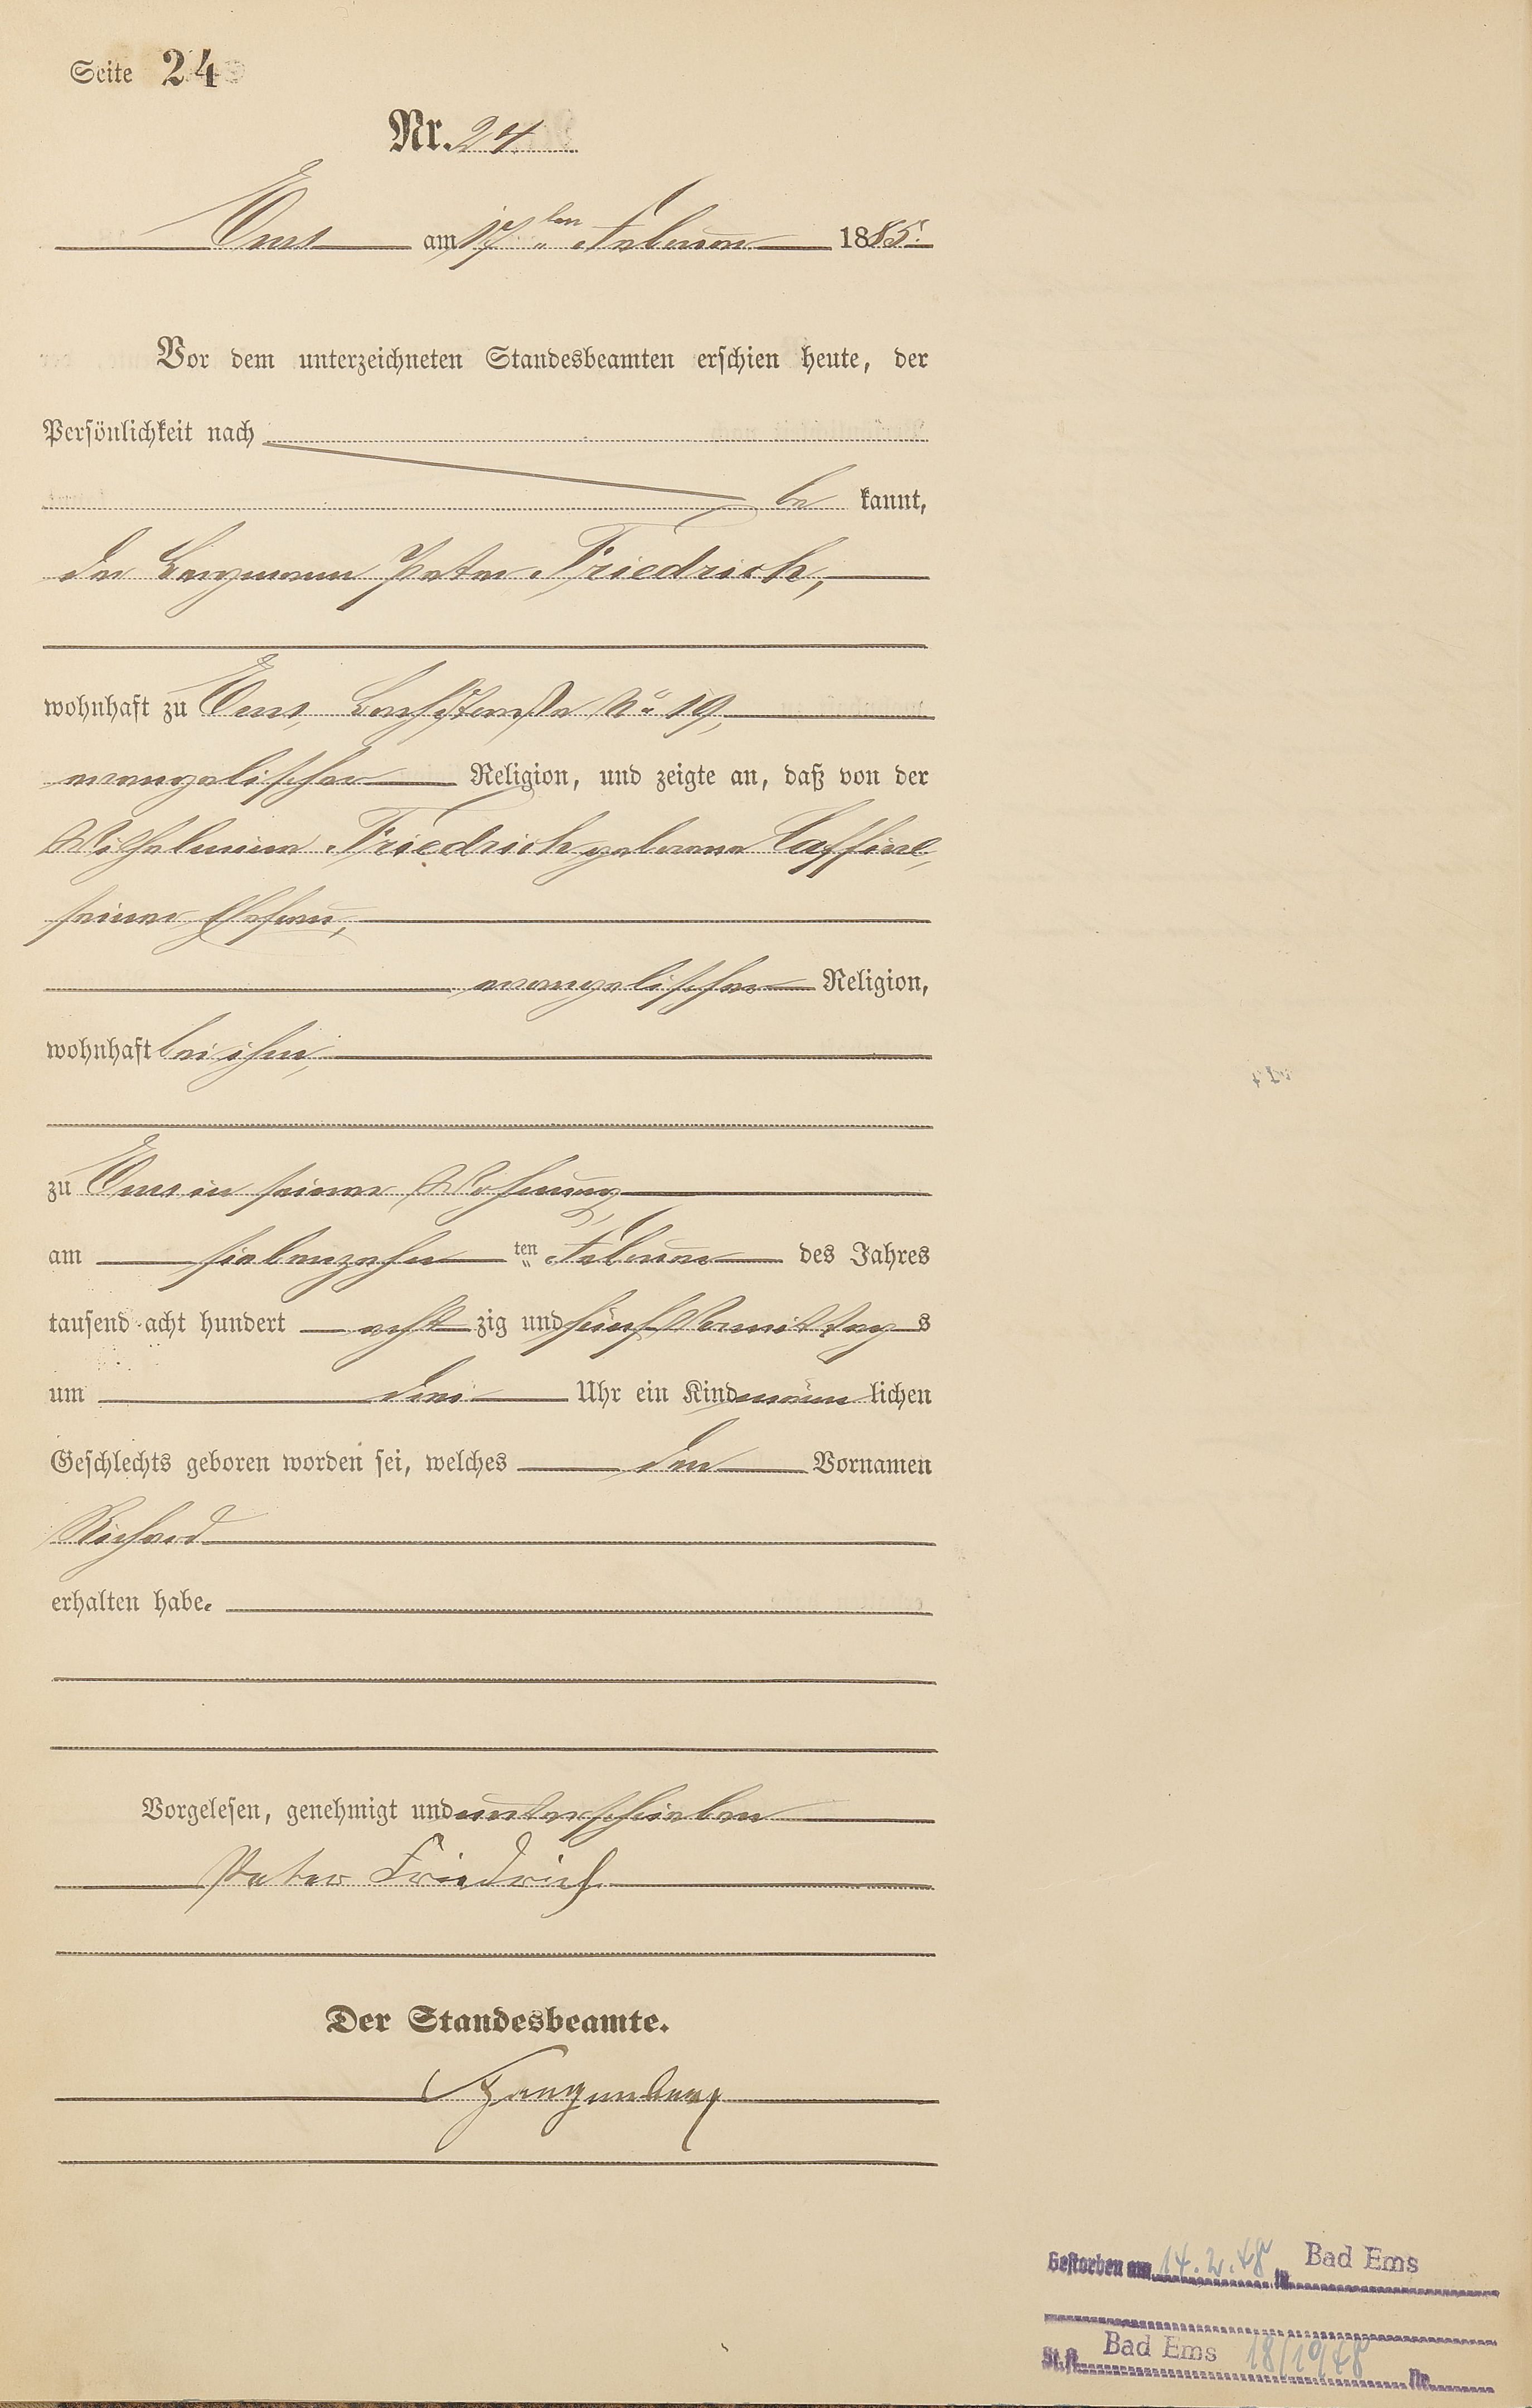 Seite 24
Nr. 24
Ems am 17ten Februar 1885.
Vor dem unterzeichneten Standesbeamten erschien heute, der
Persönlichkeit nach
be kannt,
der Bergmann Peter Friedrich,
wohnhaft zu Ems, No 19,
evangelischer Religion, und zeigte an, daß von der
Wilhelmine Friedrich geborene Caffine,
seiner Ehefrau,
evangelischer Religion,
wohnhaft bei ihm,
zu Ems in seiner Wohnung,
am siebenzehn ten Februar des Jahres
tausend acht hundert acht zig und fünf Vormittags
um drei Uhr ein Kind männ lichen
Geschlechts geboren worden sei, welches den Vornamen
Richard
erhalten habe.
Vorgelesen, genehmigt und unterschrieben
Peter Friedrich
Der Standesbeamte.
Gestorben am 14.2.48 in Bad Ems
St.A. Bad Ems 18/1948 Nr.